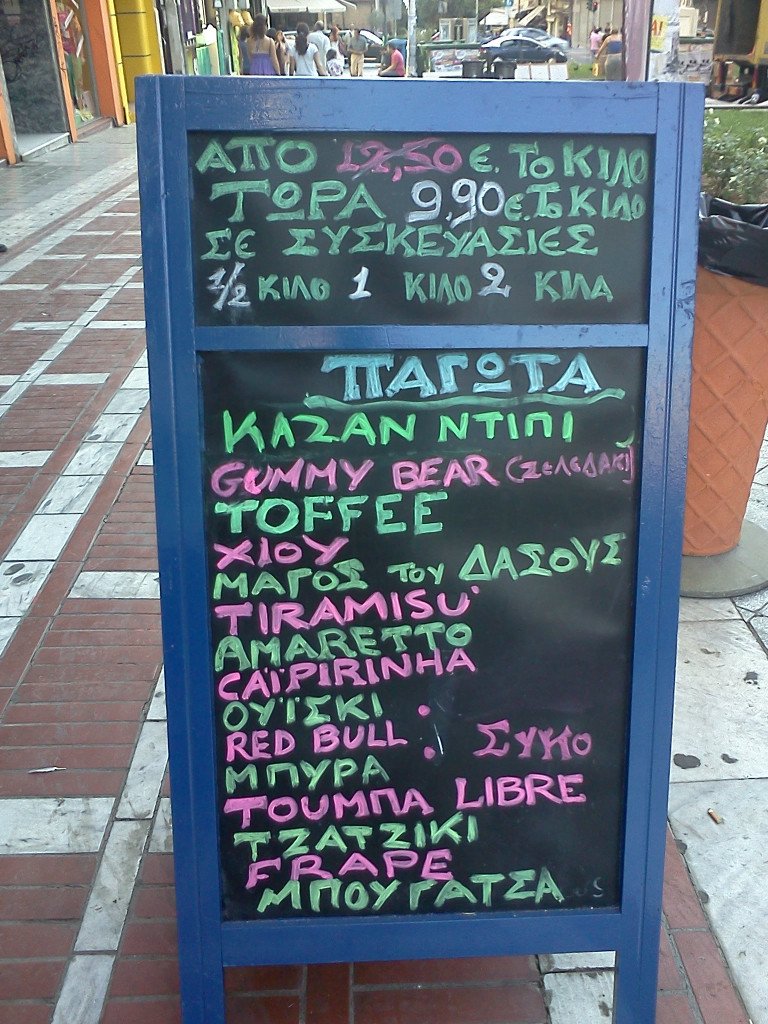 ΑΠΟ 12,50 €. ΤΟ ΚΙΛΟ
ΤΩΡΑ 9,90 €. ΤΟ ΚΙΛΟ
ΣΕ ΣΥΣΚΕΥΑΣΙΕΣ
1/2 ΚΙΛΟ 1 ΚΙΛΟ 2 ΚΙΛΑ
ΠΑΓΩΤΑ
ΚΑΖΑΝ ΝΤΙΠΙ
GUMMY BEAR (ΖΕΛΕΔΑΚΙ)
TOFFEE
ΧΙΟΥ
ΜΑΓΟΣ ΤΟΥ ΔΑΣΟΥΣ
TIRAMISU'
AMARETTO
CAÏPIRINHA
ΟΥΪΣΚΙ
RED BULL : ΣΥΚΟ
ΜΠΥΡΑ
ΤΟΥΜΠΑ LIBRE
ΤΖΑΤΖΙΚΙ
FRAPE
ΜΠΟΥΓΑΤΣΑ